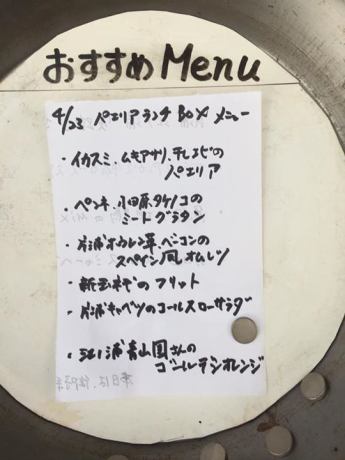 おすすめ Menu
4/23 パエリアランチBOX メニュー
・イカスミ、ムキアサリ、干しエビの
パエリア
・ペンネ、小田原タケノコの
ミートグラタン
・片浦ホウレン草、ベーコンの
スペイン風オムレツ
・新玉ねぎのフリット
・片浦キャベツのコールスローサラダ
青山園さんの
ゴールデンオレンジ